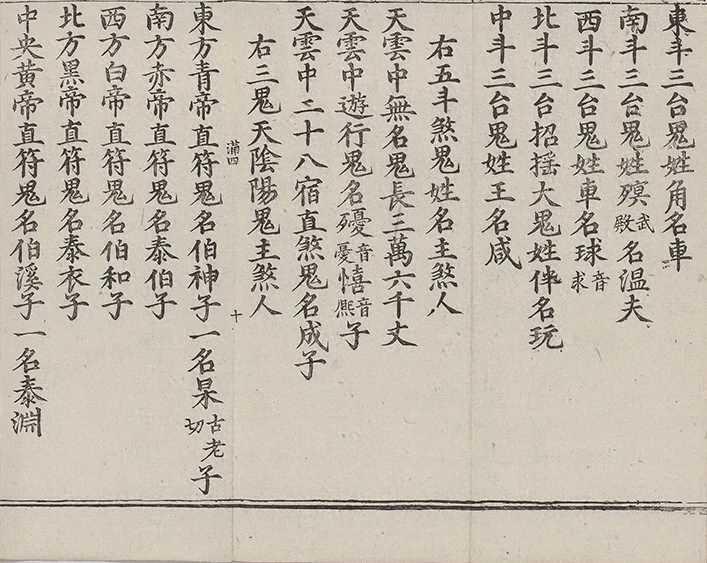 東斗三台鬼姓角名車
南斗三台鬼姓殟武殿名温夫
西斗三台鬼姓車名球音求
北斗三台招摇大鬼姓伴名玩
中斗三台鬼姓王名咸
右五斗煞鬼姓名主煞人
天雲中無名鬼長三萬六千丈
天雲中遊行鬼名音憂憘音熈子
天雲中二十八宿直煞鬼名成子
右三鬼天陰陽鬼主煞人
滿四
十
東方青帝直符鬼名伯神子一名杲古老切子
南方赤帝直符鬼名泰伯子
西方白帝直符鬼名伯和子
北方黑帝直符鬼名泰衣子
中央黃帝直符鬼名伯溪子一名泰淵